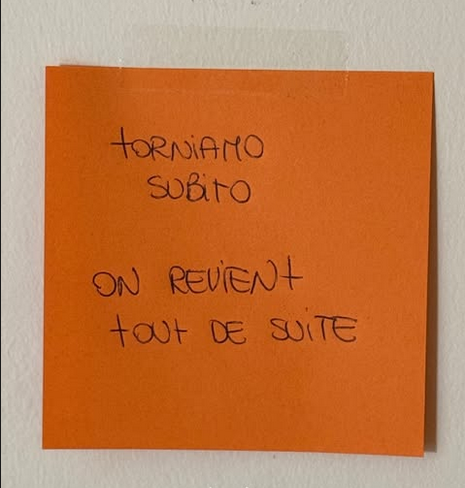 tORNiAMO
SUBitO
ON REViENt
tOUt DE SUiTE